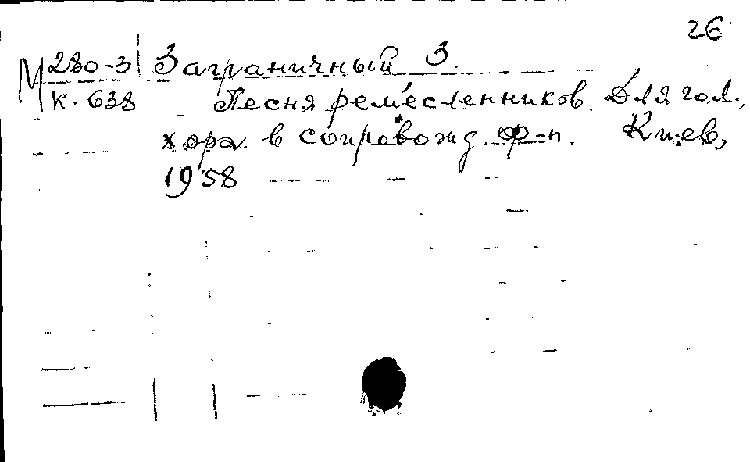 26
М 280-3 Заграничный З.
к. 638 Песня ремесленников. Для гол.,
хора в сопровожд. ф-п. Киев,
1958